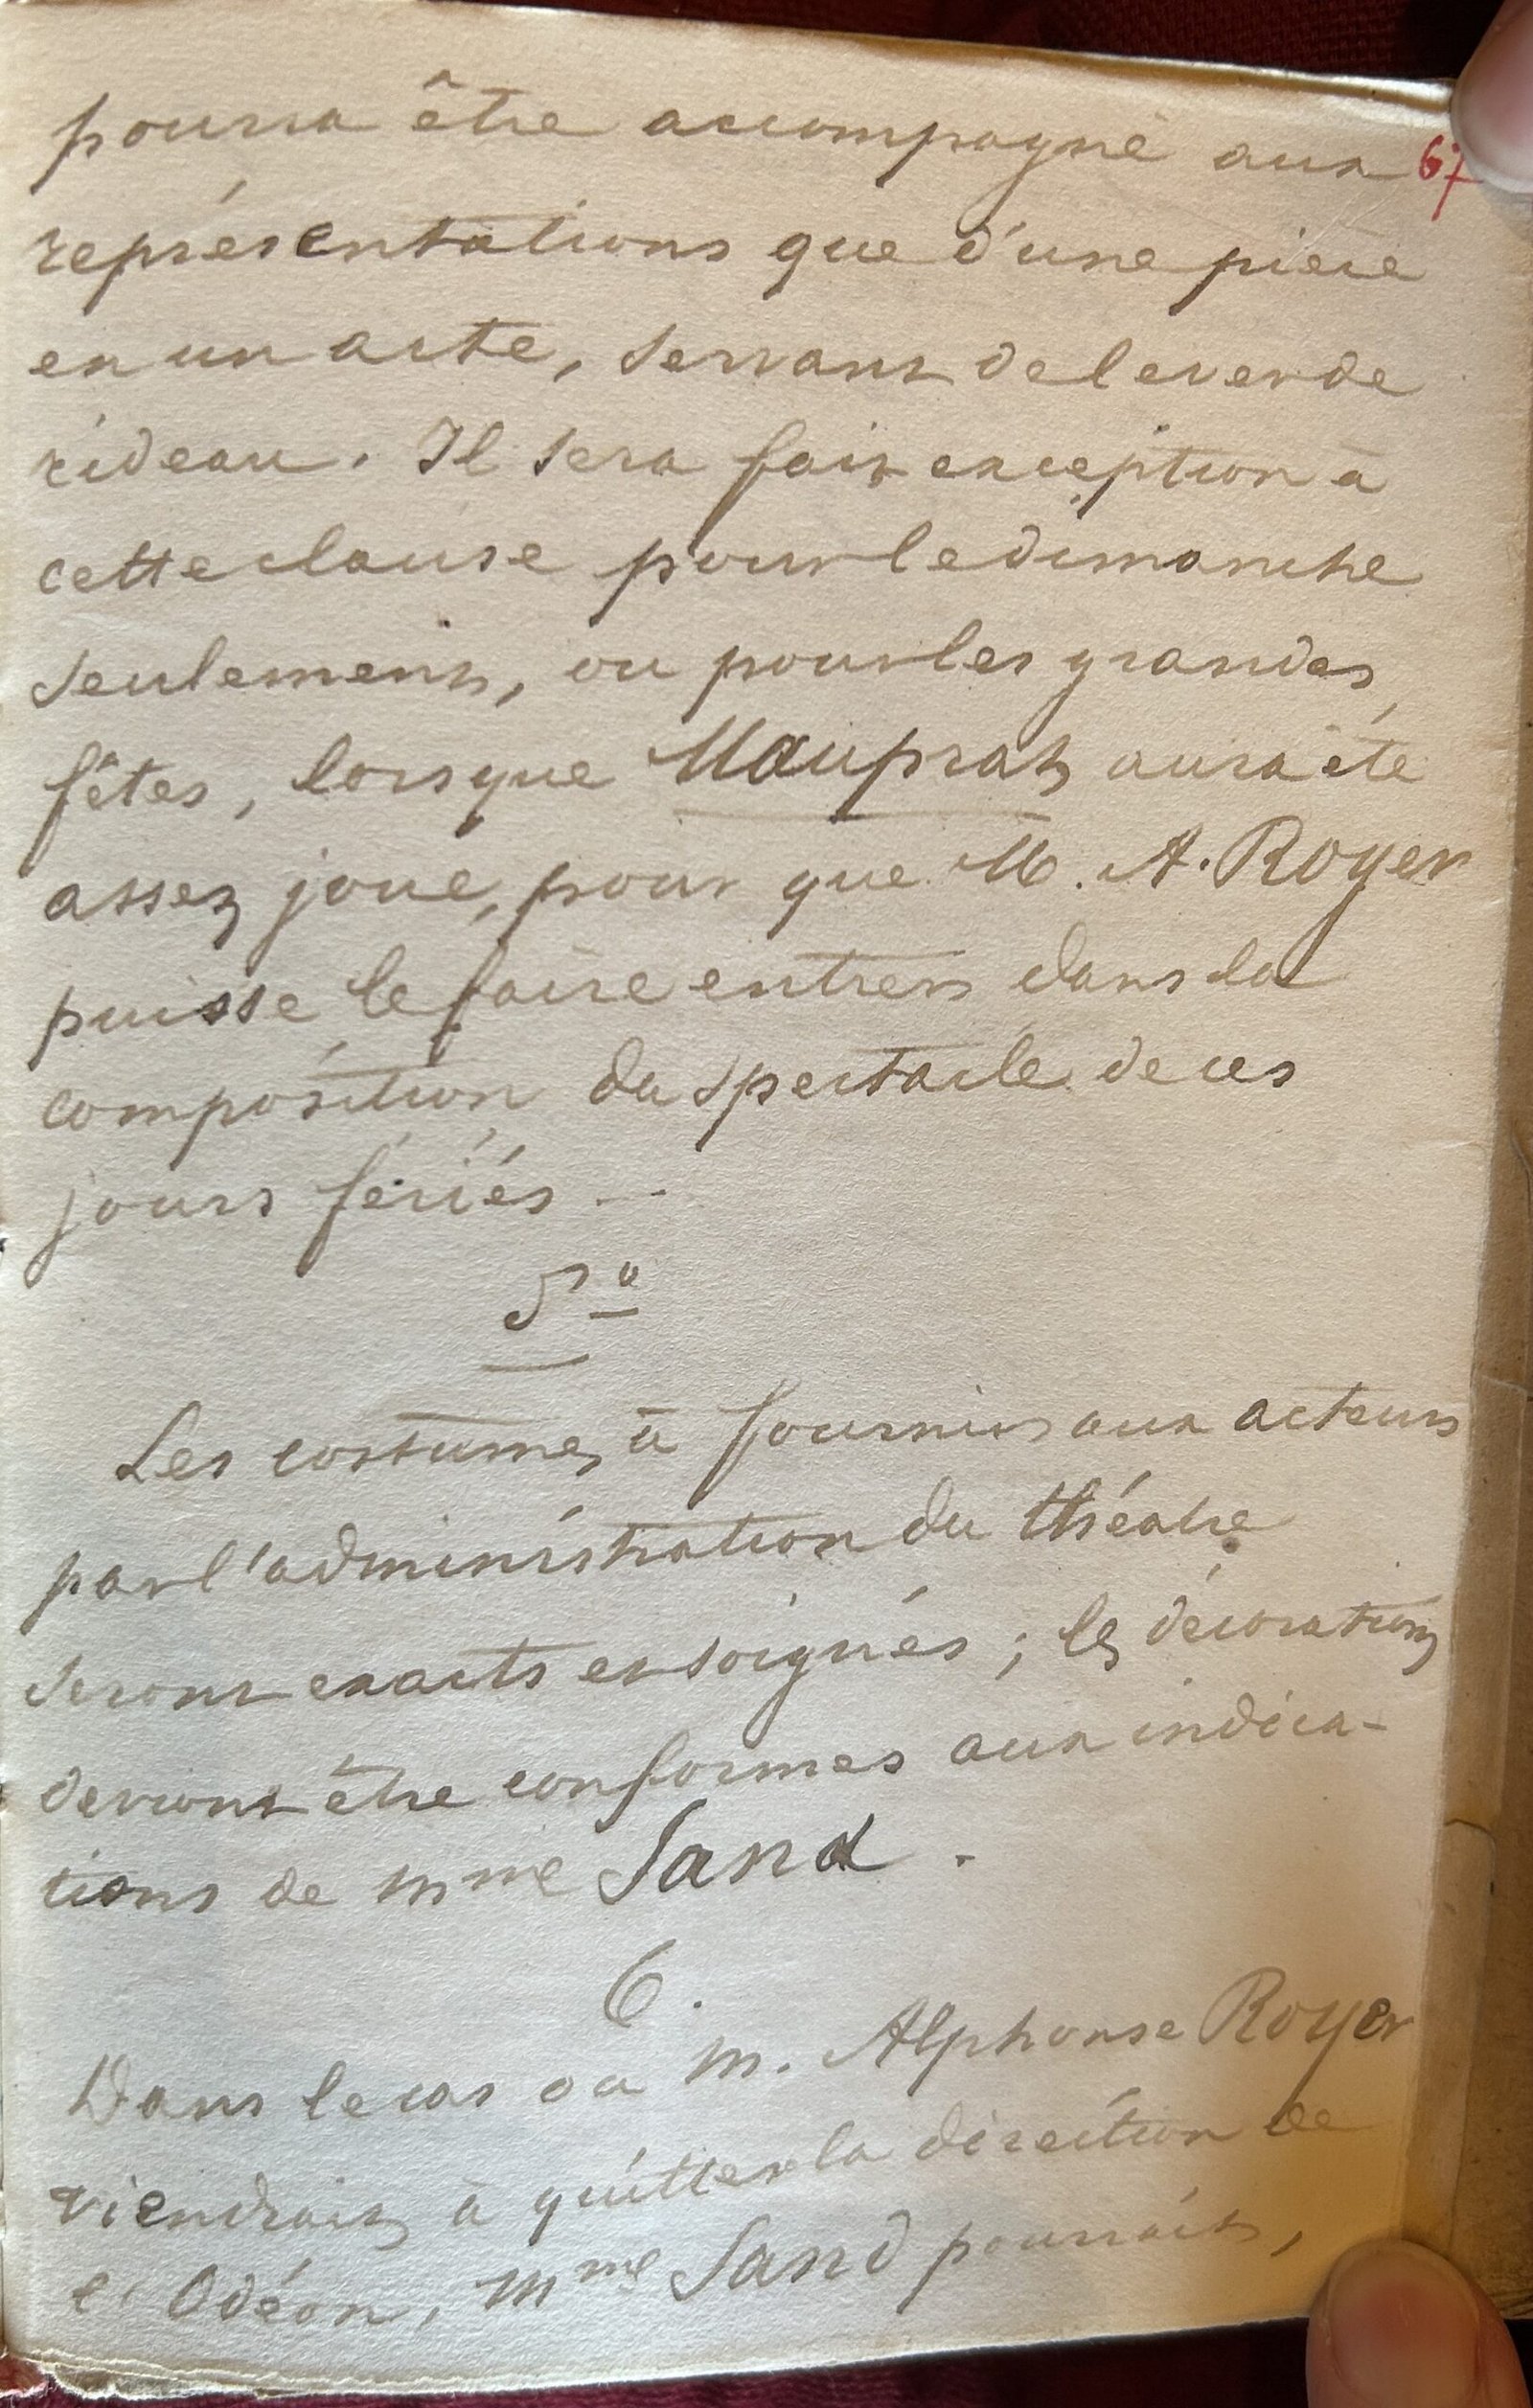 pourra être accompagné aux 67
représentations que d'une pièce
en un acte, servant de lever de
rideau. Il sera fait exception à
cette clause pour le dimanche
seulement, ou pour les grandes
fêtes, lorsque Mauprat aura été
assez joué, pour que M. A. Royer
puisse le faire entrer dans la
composition du spectacle de ces
jours fériés -
5º
Les costumes à fournir aux acteurs
par l'administration du théâtre
seront exacts et soignés ; les décorations
devront être conformes aux indica-
tions de Mme Sand.
6.
Dans le cas où M. Alphonse Royer
viendrait à quitter la direction de
l'Odéon, Mme Sand pourrait,